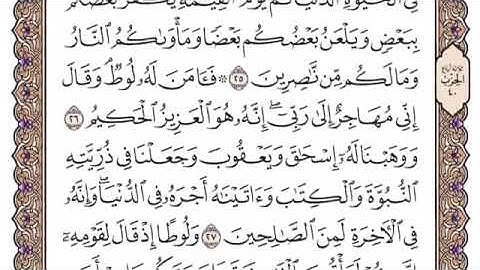 فِي ٱلۡحَيَوٰةِ ٱلدُّنۡيَاۖ ثُمَّ يَوۡمَ ٱلۡقِيَٰمَةِ يَكۡفُرُ بَعۡضُكُم
بِبَعۡضٖ وَيَلۡعَنُ بَعۡضُكُم بَعۡضٗا وَمَأۡوَىٰكُمُ ٱلنَّارُ
وَمَا لَكُم مِّن نَّٰصِرِينَ ٢٥ ۞ فَـَٔامَنَ لَهُۥ لُوطٞۘ وَقَالَ
إِنِّي مُهَاجِرٌ إِلَىٰ رَبِّيٓۖ إِنَّهُۥ هُوَ ٱلۡعَزِيزُ ٱلۡحَكِيمُ ٢٦
وَوَهَبۡنَا لَهُۥٓ إِسۡحَٰقَ وَيَعۡقُوبَ وَجَعَلۡنَا فِي ذُرِّيَّتِهِ
ٱلنُّبُوَّةَ وَٱلۡكِتَٰبَ وَءَاتَيۡنَٰهُ أَجۡرَهُۥ فِي ٱلدُّنۡيَاۖ وَإِنَّهُۥ
فِي ٱلۡأٓخِرَةِ لَمِنَ ٱلصَّٰلِحِينَ ٢٧ وَلُوطًا إِذۡ قَالَ لِقَوۡمِهِۦٓ
الحزب
٤٠